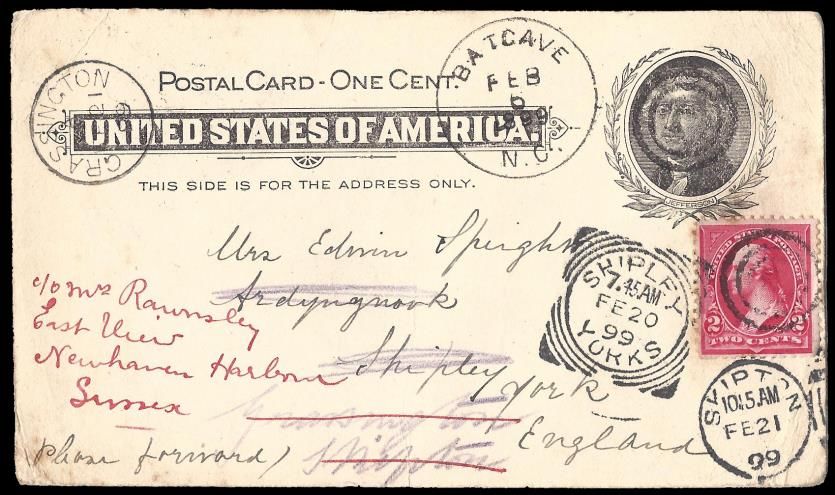 POSTAL CARD - ONE CENT.
UNITED STATES OF AMERICA.
THIS SIDE IS FOR THE ADDRESS ONLY.
JEFFERSON
GRASSINGTON
BATCAVE
FEB
6
1899
N.C.
Mrs Edwin Speight
Shipley
York
England
c/o Mrs Rawnsley
East View
Newhaven Harbour
Sussex
Grassington
Skipton
(please forward)
SHIPLEY
7.45AM
FE 20
99
YORKS
UNITED STATES POSTAGE
2 2
TWO CENTS
SKIPTON
10.15.AM
FE 21
99